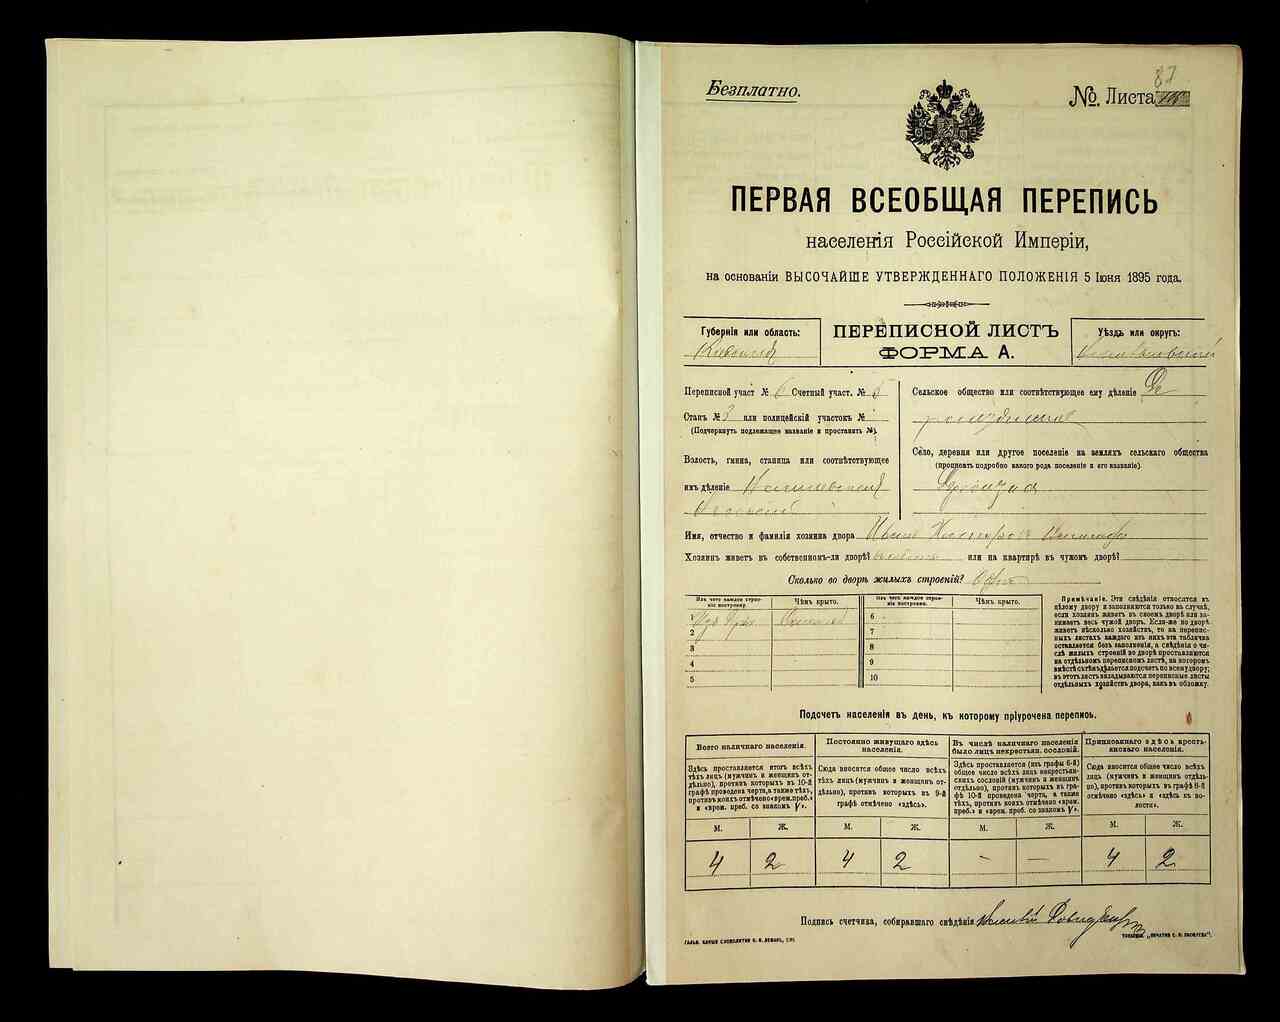 Безплатно.
87
№. Листа
ПЕРВАЯ ВСЕОБЩАЯ ПЕРЕПИСЬ
населенія Россійской Имперіи,
на основаніи ВЫСОЧАЙШЕ УТВЕРЖДЕННАГО ПОЛОЖЕНІЯ 5 Іюня 1895 года.
Губернія или область:
Кіевская
ПЕРЕПИСНОЙ ЛИСТЪ
ФОРМА А.
Уѣздъ или округъ:
Переписной участ № 6 Счетный участ. № 5
Станъ № 3 или полицейскій участокъ №
(Подчеркнуть подлежащее названіе и проставить №).
Волость, гмина, станица или соотвѣтствующее
имъ дѣленіе
Сельское общество или соотвѣтствующее ему дѣленіе
Село, деревня или другое поселеніе на земляхъ сельскаго общества
(прописать подробно какого рода поселеніе и его названіе).
Имя, отчество и фамилія хозяина двора Иванъ
Хозяинъ живетъ въ собственномъ-ли дворѣ? или на квартирѣ въ чужомъ дворѣ?
Сколько во дворѣ жилыхъ строеній?
Изъ чего каждое строе-
ніе построено.
Чѣмъ крыто.
1 Изъ
2
3
4
5
Изъ чего каждое строе-
ніе построено.
Чѣмъ крыто.
6
7
8
9
10
Примѣчаніе. Эти свѣдѣнія относятся къ
цѣлому двору и заполняются только на случай,
если хозяинъ живетъ въ своемъ дворѣ или за-
нимаетъ весь чужой дворъ. Если-же во дворѣ
живетъ нѣсколько хозяйствъ, то на перепис-
ныхъ листахъ каждаго изъ нихъ эта табличка
оставляется безъ заполненія, а свѣдѣнія о чи-
слѣ жилыхъ строеній во дворѣ проставляются
на отдѣльномъ переписномъ листѣ, на которомъ
вмѣстѣ съ тѣмъ дѣлается подсчетъ по всему двору;
въ этотъ листъ вкладываются переписные листы
отдѣльныхъ хозяйствъ двора, какъ въ обложку.
Подсчетъ населенія въ день, къ которому пріурочена перепись.
Всего наличнаго населенія.
Здѣсь проставляется итогъ всѣхъ
тѣхъ лицъ (мужчинъ и женщинъ от-
дѣльно), противъ которыхъ въ 10-й
графѣ проведена черта, а также тѣхъ,
противъ коихъ отмѣчено «врем. преб.»
и «врем. преб. со знакомъ V».
М. Ж.
4 2
Постоянно живущаго здѣсь
населенія.
Сюда вносится общее число всѣхъ
тѣхъ лицъ (мужчинъ и женщинъ от-
дѣльно), противъ которыхъ въ 9-й
графѣ отмѣчено «здѣсь».
М. Ж.
4 2
Въ числѣ наличнаго населенія
было лицъ некрестьян. сословій.
Здѣсь проставляется (изъ графы 6-й)
общее число всѣхъ лицъ некрестьян-
скихъ сословій (мужчинъ и женщинъ
отдѣльно), противъ которыхъ въ гра-
фѣ 10-й проведена черта, а также
тѣхъ, противъ коихъ отмѣчено «врем.
преб.» и «врем. преб. со знакомъ V».
М. Ж.
- -
Приписаннаго здѣсь кресть-
янскаго населенія.
Сюда вносится общее число всѣхъ
лицъ (мужчинъ и женщинъ отдѣль-
но), противъ которыхъ въ графѣ 8-й
отмѣчено «здѣсь» и «здѣсь къ во-
лости».
М. Ж.
4 2
Подпись счетчика, собиравшаго свѣдѣнія